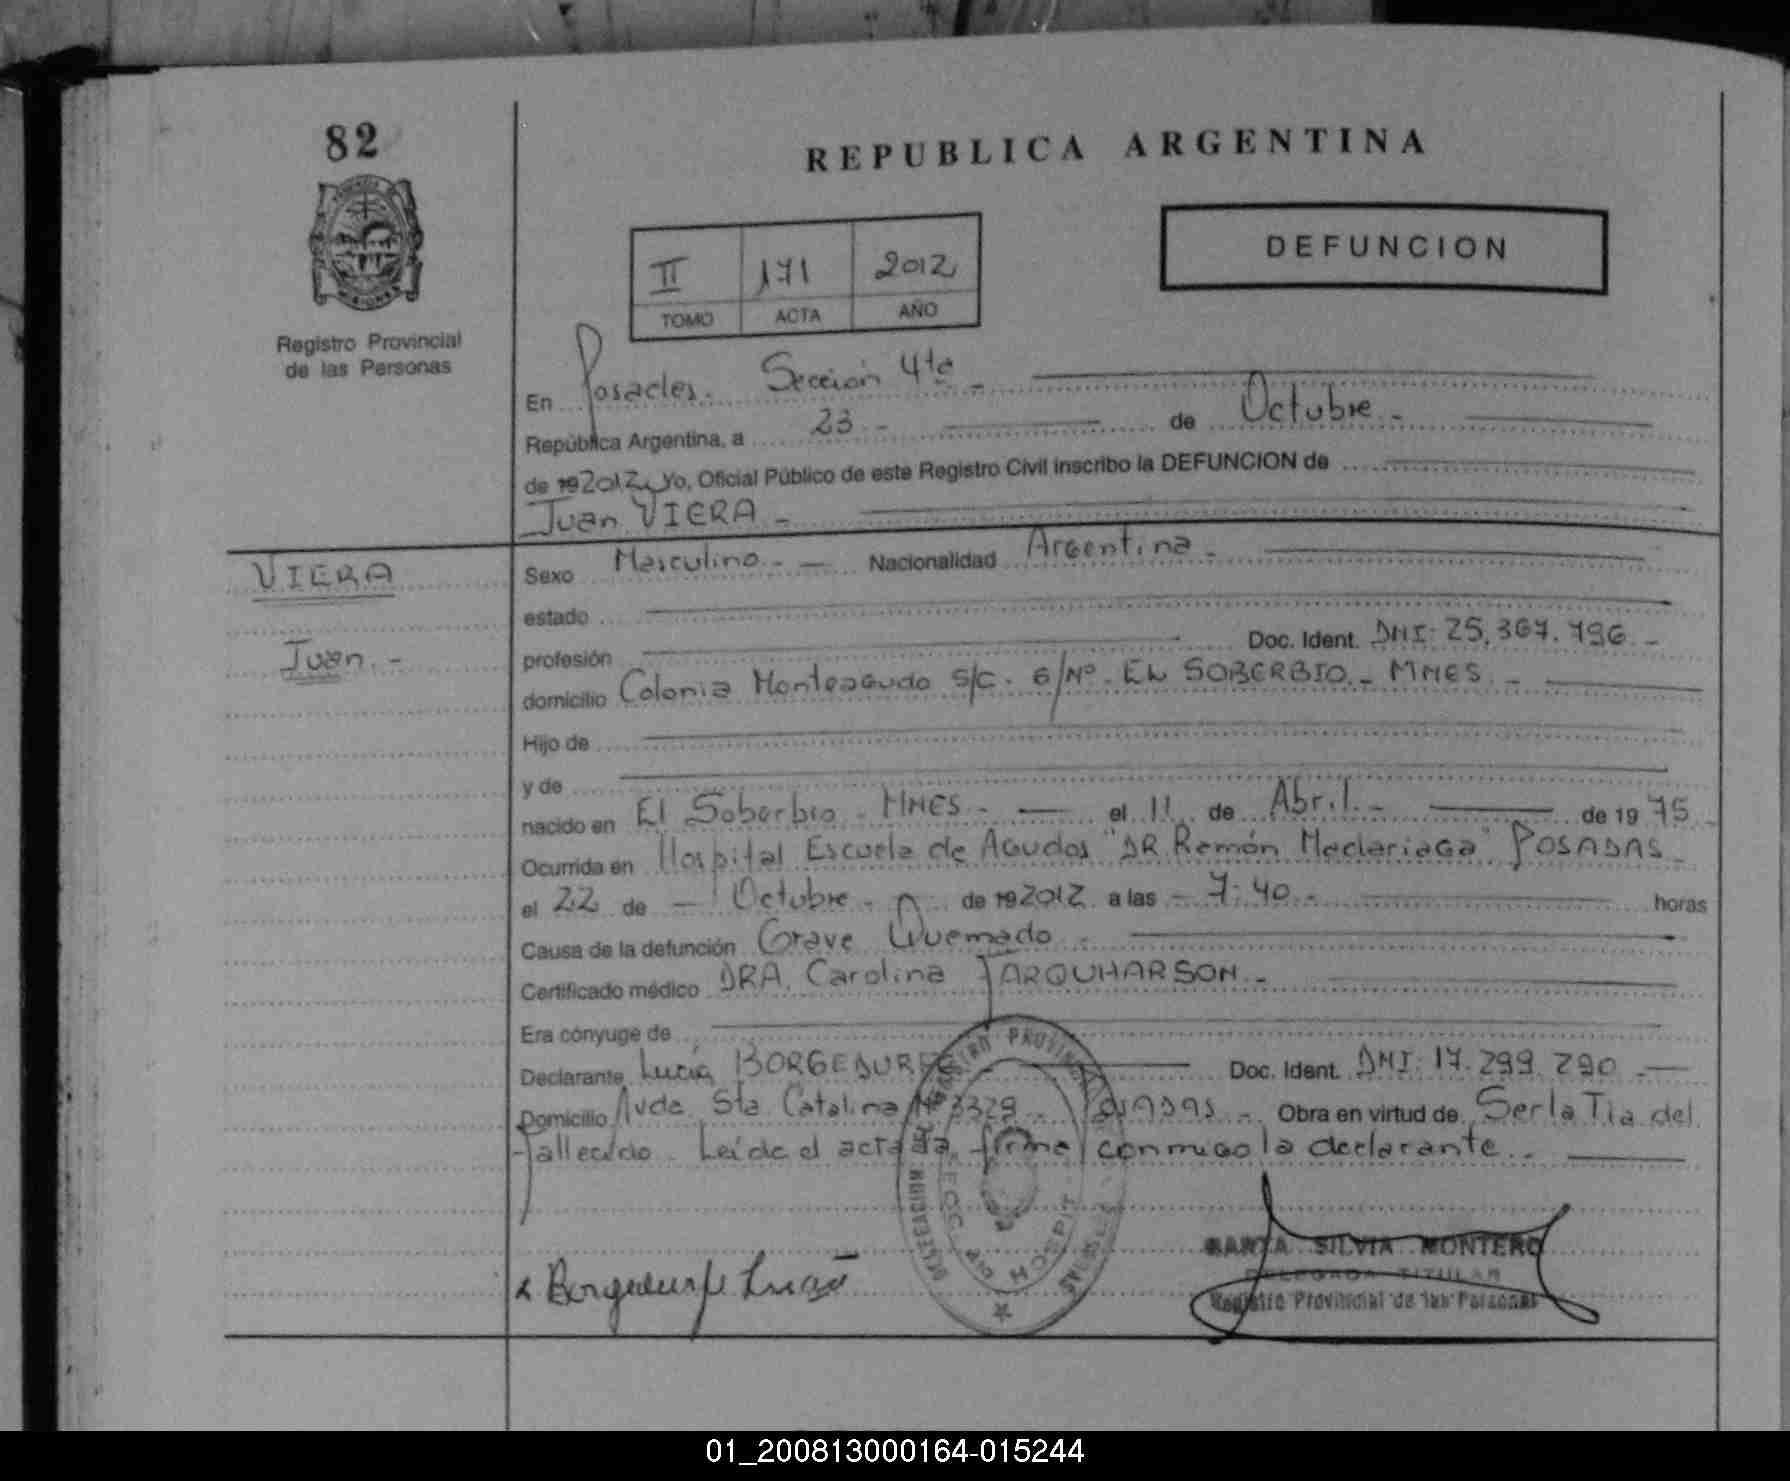 82
REPUBLICA ARGENTINA
DEFUNCION
II 171 2012
TOMO ACTA AÑO
MISIONES
Registro Provincial
de las Personas
En Posadas. Sección 4ta -
República Argentina, a 23 - de Octubre -
de 192012 Yo, Oficial Público de este Registro Civil inscribo la DEFUNCION de
Juan VIERA -
VIERA
Juan. -
Sexo Masculino. - Nacionalidad Argentina -
estado
profesión Doc. Ident. DNI: 25.367.796 -
domicilio Colonia Monteagudo S/C. S/Nº. EL SOBERBIO - MNES. -
Hijo de
y de
nacido en El Soberbio - MNES - el 11 de Abril - de 19 75 -
Ocurrida en Hospital Escuela de Agudos "DR Ramón Madariaga" POSADAS -
el 22 de - Octubre - de 192012 a las - 7:40 - horas
Causa de la defunción Grave Quemado -
Certificado médico DRA. Carolina FARQUHARSON -
Era cónyuge de
Declarante Lucía Doc. Ident. DNI: 17.299.290 -
Domicilio Avda. Sta. Catalina Nº 3329 - POSADAS - Obra en virtud de Ser la Tia del
fallecido. Leída el acta la firma conmigo la declarante -
REGISTRO PROVINCIAL
DELEGACION
SECC. 4ta HOSPIT.
x Lucia
MARTA SILVIA MONTERO
DELEGADA TITULAR
Registro Provincial de las Personas
01_200813000164-015244